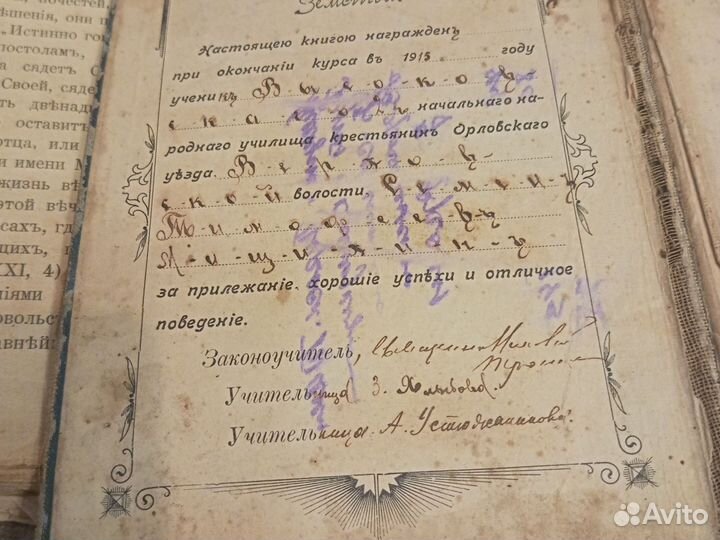 почестей,
ѣшенія, они п
„Истинно гов
постоламъ,
а сядетъ С
Своей, сяде
ть двѣнад
оставитъ
отца, или
и имени М
жизнь вѣ
этой вѣч
сахъ, гд
щихъ, п
XXI, 4)
ніями
овольст
авнѣй
Земством
Настоящею книгою награжденъ
при окончаніи курса въ 1915 году
ученикъ Высоков-
скаго начальнаго на-
роднаго училища крестьянинъ Орловскаго
уѣзда Верхов-
ской волости, Семенъ
Тимофеевъ
за прилежаніе хорошіе успѣхи и отличное
поведеніе.
Законоучитель, священникъ
Учительница З.
Учительница А. Устюжанинова.
Avito